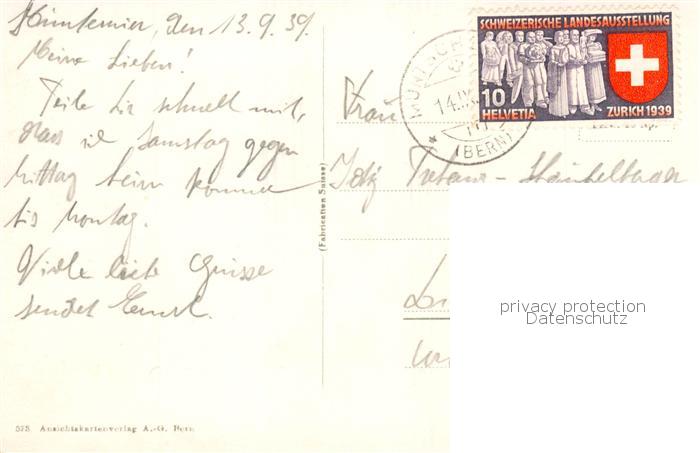 den 13.9.39.
Meine Lieben!
Teile Dir schnell mit,
dass ich Samstag gegen
Mittag heim komme
bis Montag.
Viele liebe Grüsse
sendet Ernst.
573 Ansichtskartenverlag A.-G. Bern
(Fabrication Suisse)
SCHWEIZERISCHE LANDESAUSSTELLUNG
10
HELVETIA ZURICH 1939
14.IX.
(BERN)
Frau
privacy protection
Datenschutz